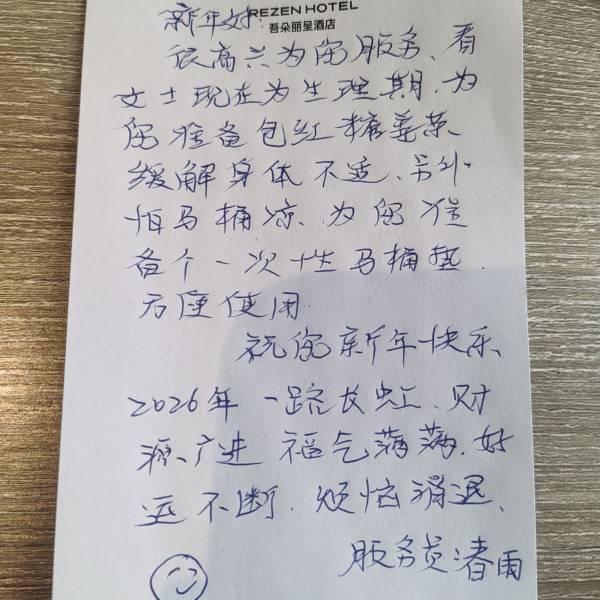 REZEN HOTEL
吾朵丽呈酒店
新年好
很高兴为您服务、看
女士现在为生理期,为
您准备包红糖姜茶、
缓解身体不适、另外
怕马桶凉、为您准
备个一次性马桶垫.
方便使用.
祝您新年快乐
2026年 一路长虹、财
源广进 福气满满.好
运不断.烦恼消退、
服务员:春雨